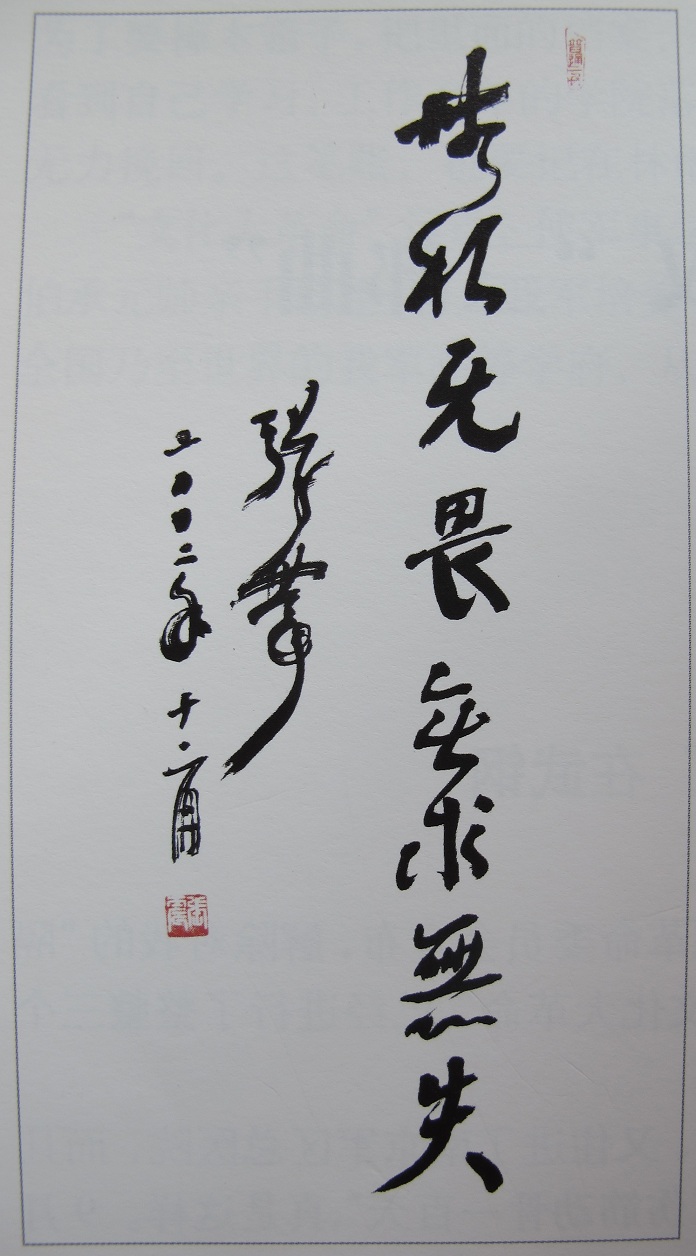 無私无畏無求無失
張震
二〇〇二年十二月